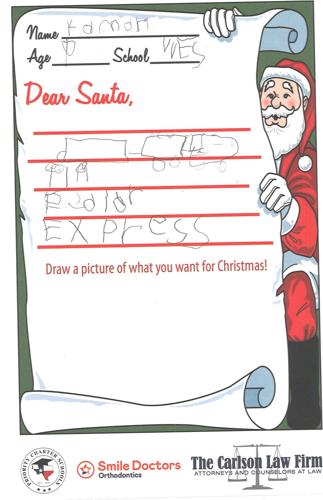 Name
Age School WES
Dear Santa,
EXPress
Draw a picture of what you want for Christmas!
PRIORITY CHARTER SCHOOLS
Smile Doctors
Orthodontics
The Carlson Law Firm
ATTORNEYS AND COUNSELORS AT LAW